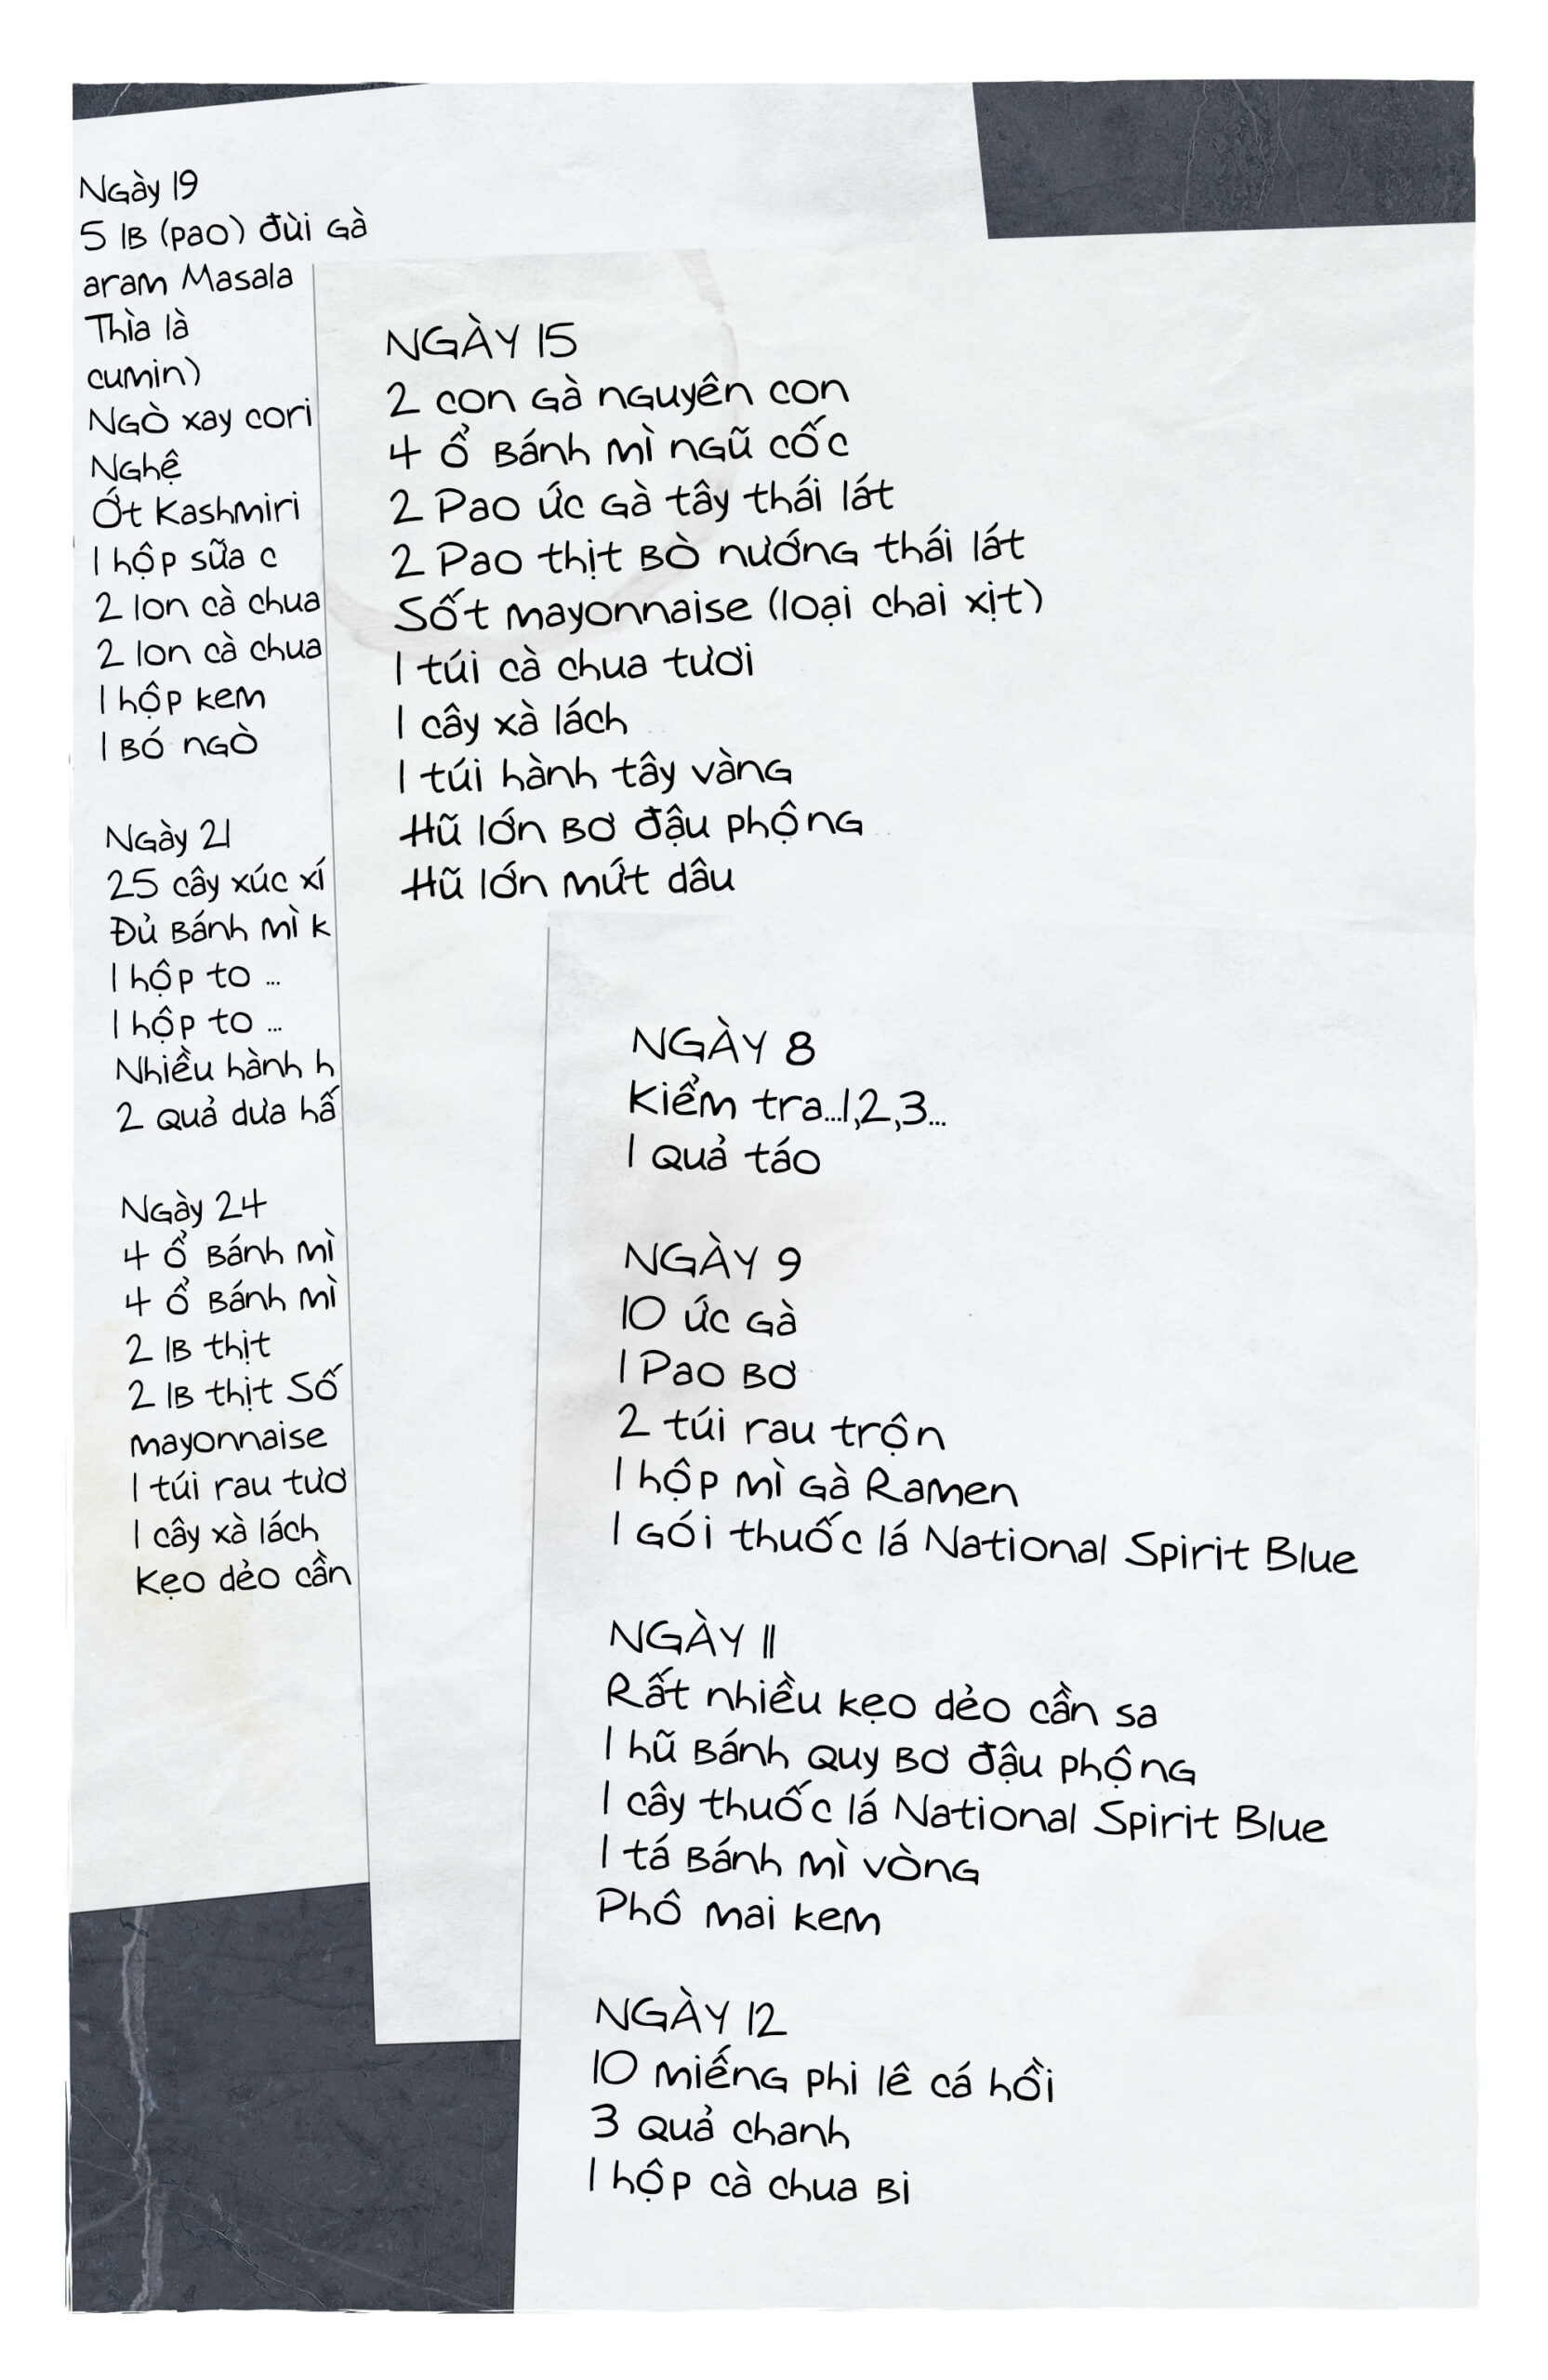 Ngày 19
5 lB (pao) đùi gà
aram Masala
Thìa là
cumin)
Ngò xay cori
Nghệ
Ớt Kashmiri
1 hộp sữa c
2 lon cà chua
2 lon cà chua
1 hộp kem
1 bó ngò
Ngày 21
25 cây xúc xí
Đủ bánh mì k
1 hộp to ...
1 hộp to ...
Nhiều hành h
2 quả dưa hấ
Ngày 24
4 ổ bánh mì
4 ổ bánh mì
2 lB thịt
2 lB thịt Số
mayonnaise
1 túi rau tươ
1 cây xà lách
Kẹo dẻo cần
NGÀY 15
2 con gà nguyên con
4 ổ bánh mì ngũ cốc
2 Pao ức gà tây thái lát
2 Pao thịt bò nướng thái lát
Sốt mayonnaise (loại chai xịt)
1 túi cà chua tươi
1 cây xà lách
1 túi hành tây vàng
Hũ lớn bơ đậu phộng
Hũ lớn mứt dâu
NGÀY 8
Kiểm tra...1,2,3...
1 quả táo
NGÀY 9
10 ức gà
1 Pao bơ
2 túi rau trộn
1 hộp mì gà Ramen
1 gói thuốc lá National Spirit Blue
NGÀY 11
Rất nhiều kẹo dẻo cần sa
1 hũ bánh quy bơ đậu phộng
1 cây thuốc lá National Spirit Blue
1 tá bánh mì vòng
Phô mai kem
NGÀY 12
10 miếng phi lê cá hồi
3 quả chanh
1 hộp cà chua bi